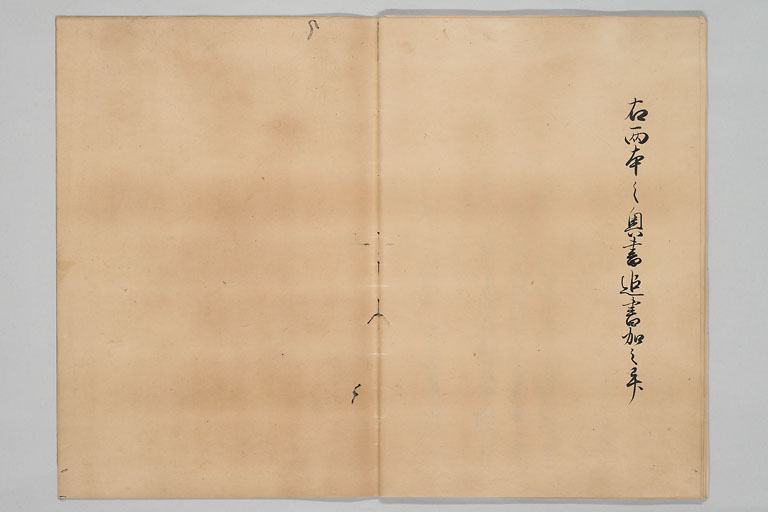 右両本之奥書追書加之畢